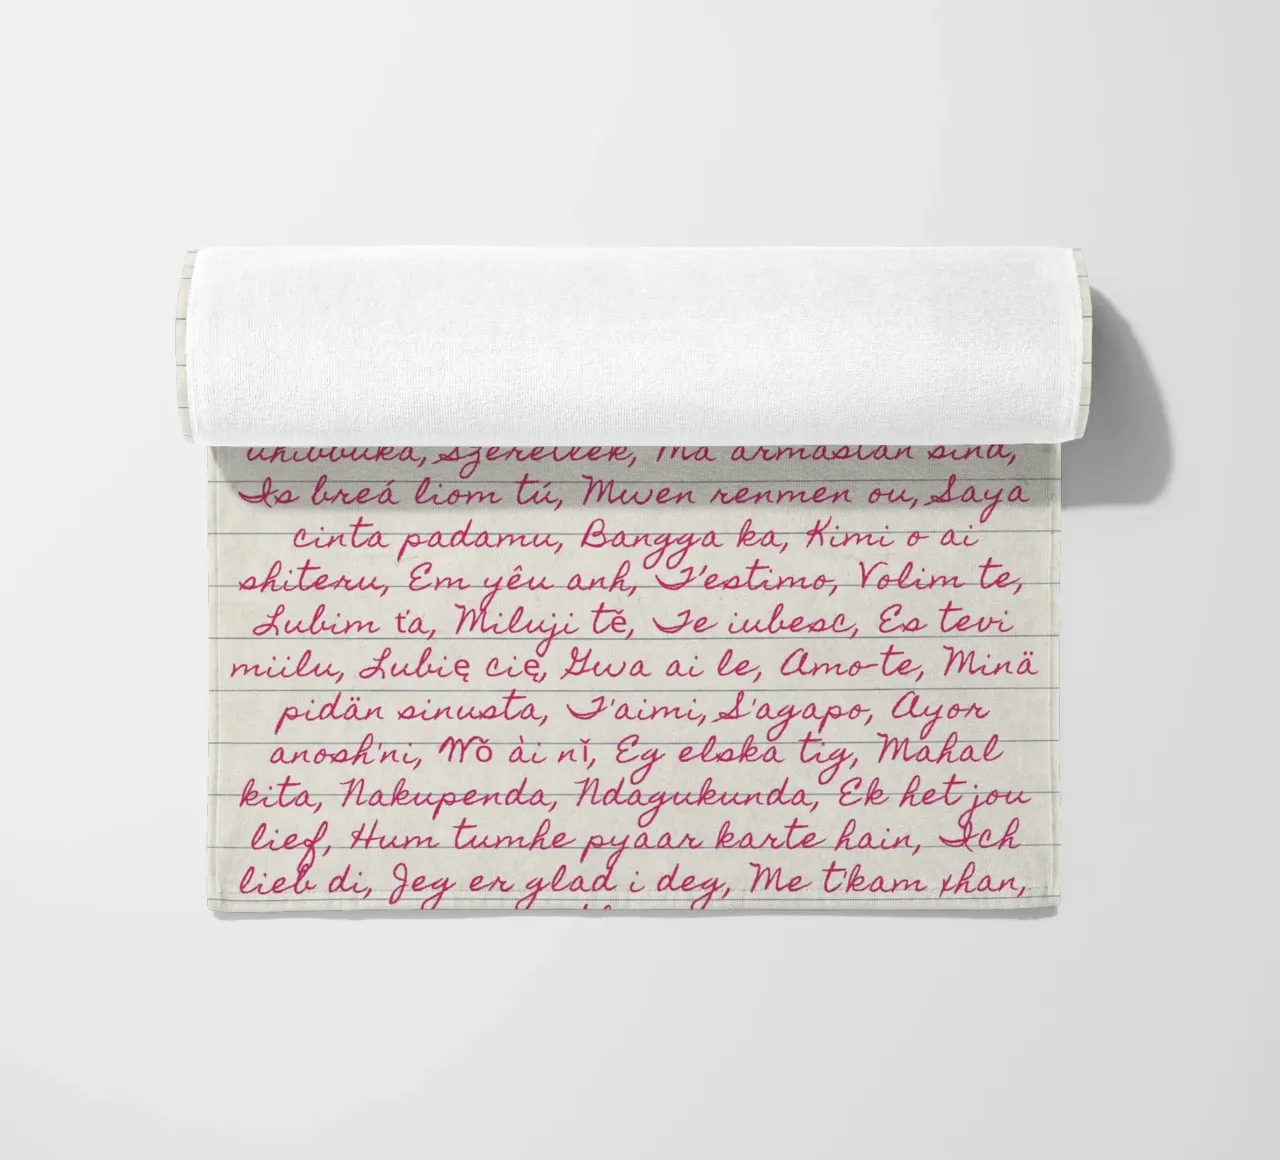 uhibbuka, Szeretlek, Ma armastan sind,
Is breá liom tú, Mwen renmen ou, Saya
cinta padamu, Bangga ka, Kimi o ai
shiteru, Em yêu anh, T'estimo, Volim te,
Lubim ťa, Miluji tě, Te iubesc, Es tevi
miilu, Lubię cię, Gwa ai le, Amo-te, Minä
pidän sinusta, T'aimi, S'agapo, Ayor
anosh'ni, Wǒ ài nǐ, Eg elska tig, Mahal
kita, Nakupenda, Ndagukunda, Ek het jou
lief, Hum tumhe pyaar karte hain, Ich
lieb di, Jeg er glad i deg, Me t'kam xhan,